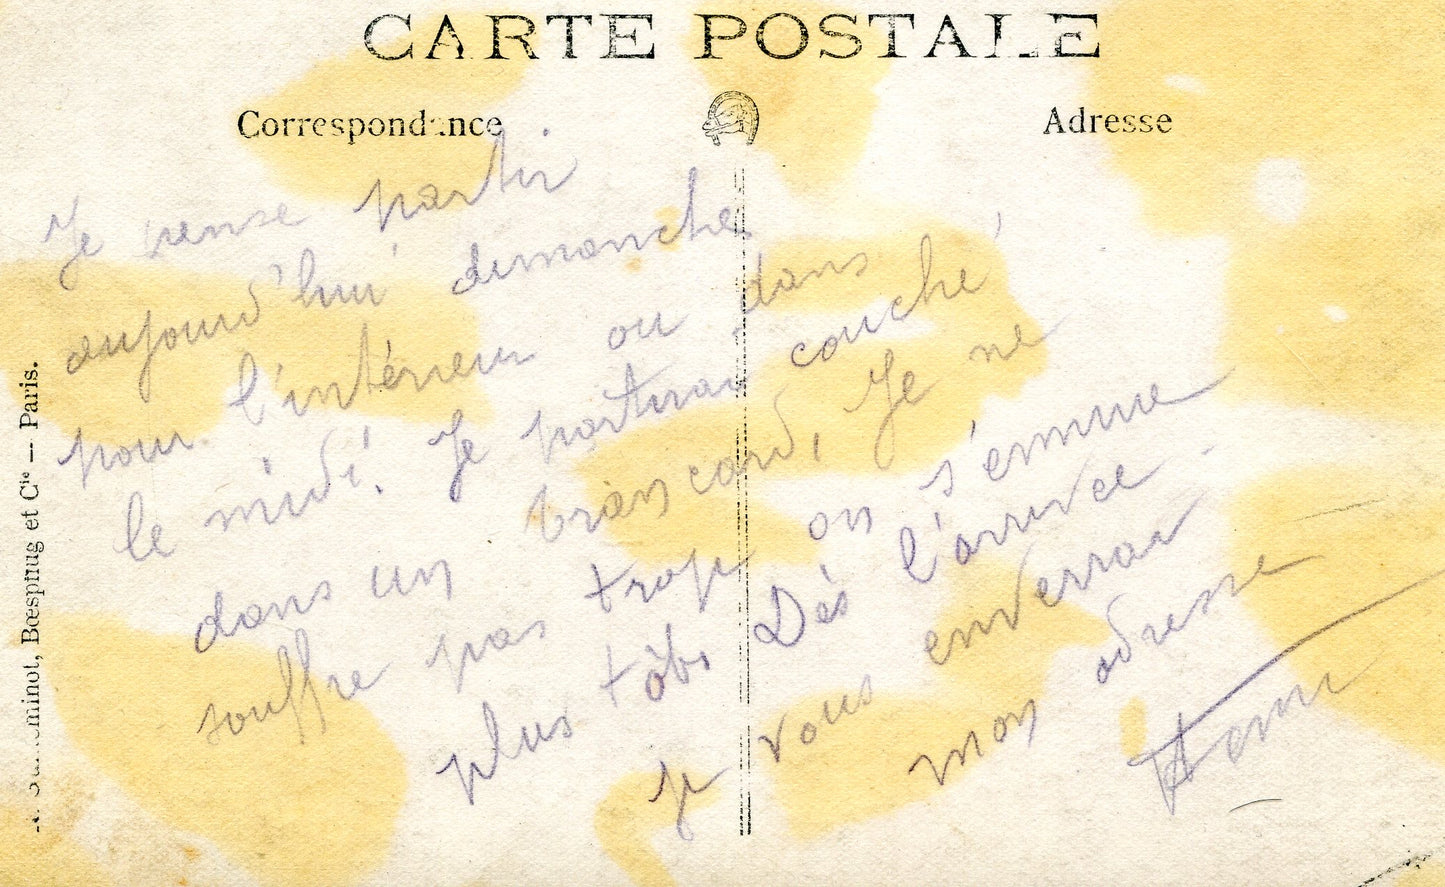 CARTE POSTALE
Correspondance
Adresse
Je pense partir
aujourd'hui dimanche
pour l'intérieur ou dans
le midi. Je partirai couché
dans un brancard, Je ne
souffre pas trop on s'ennuie
plus tôt. Dès l'arrivée
je vous enverrai
mon adresse
Henri
Bœspflug et Cie — Paris.